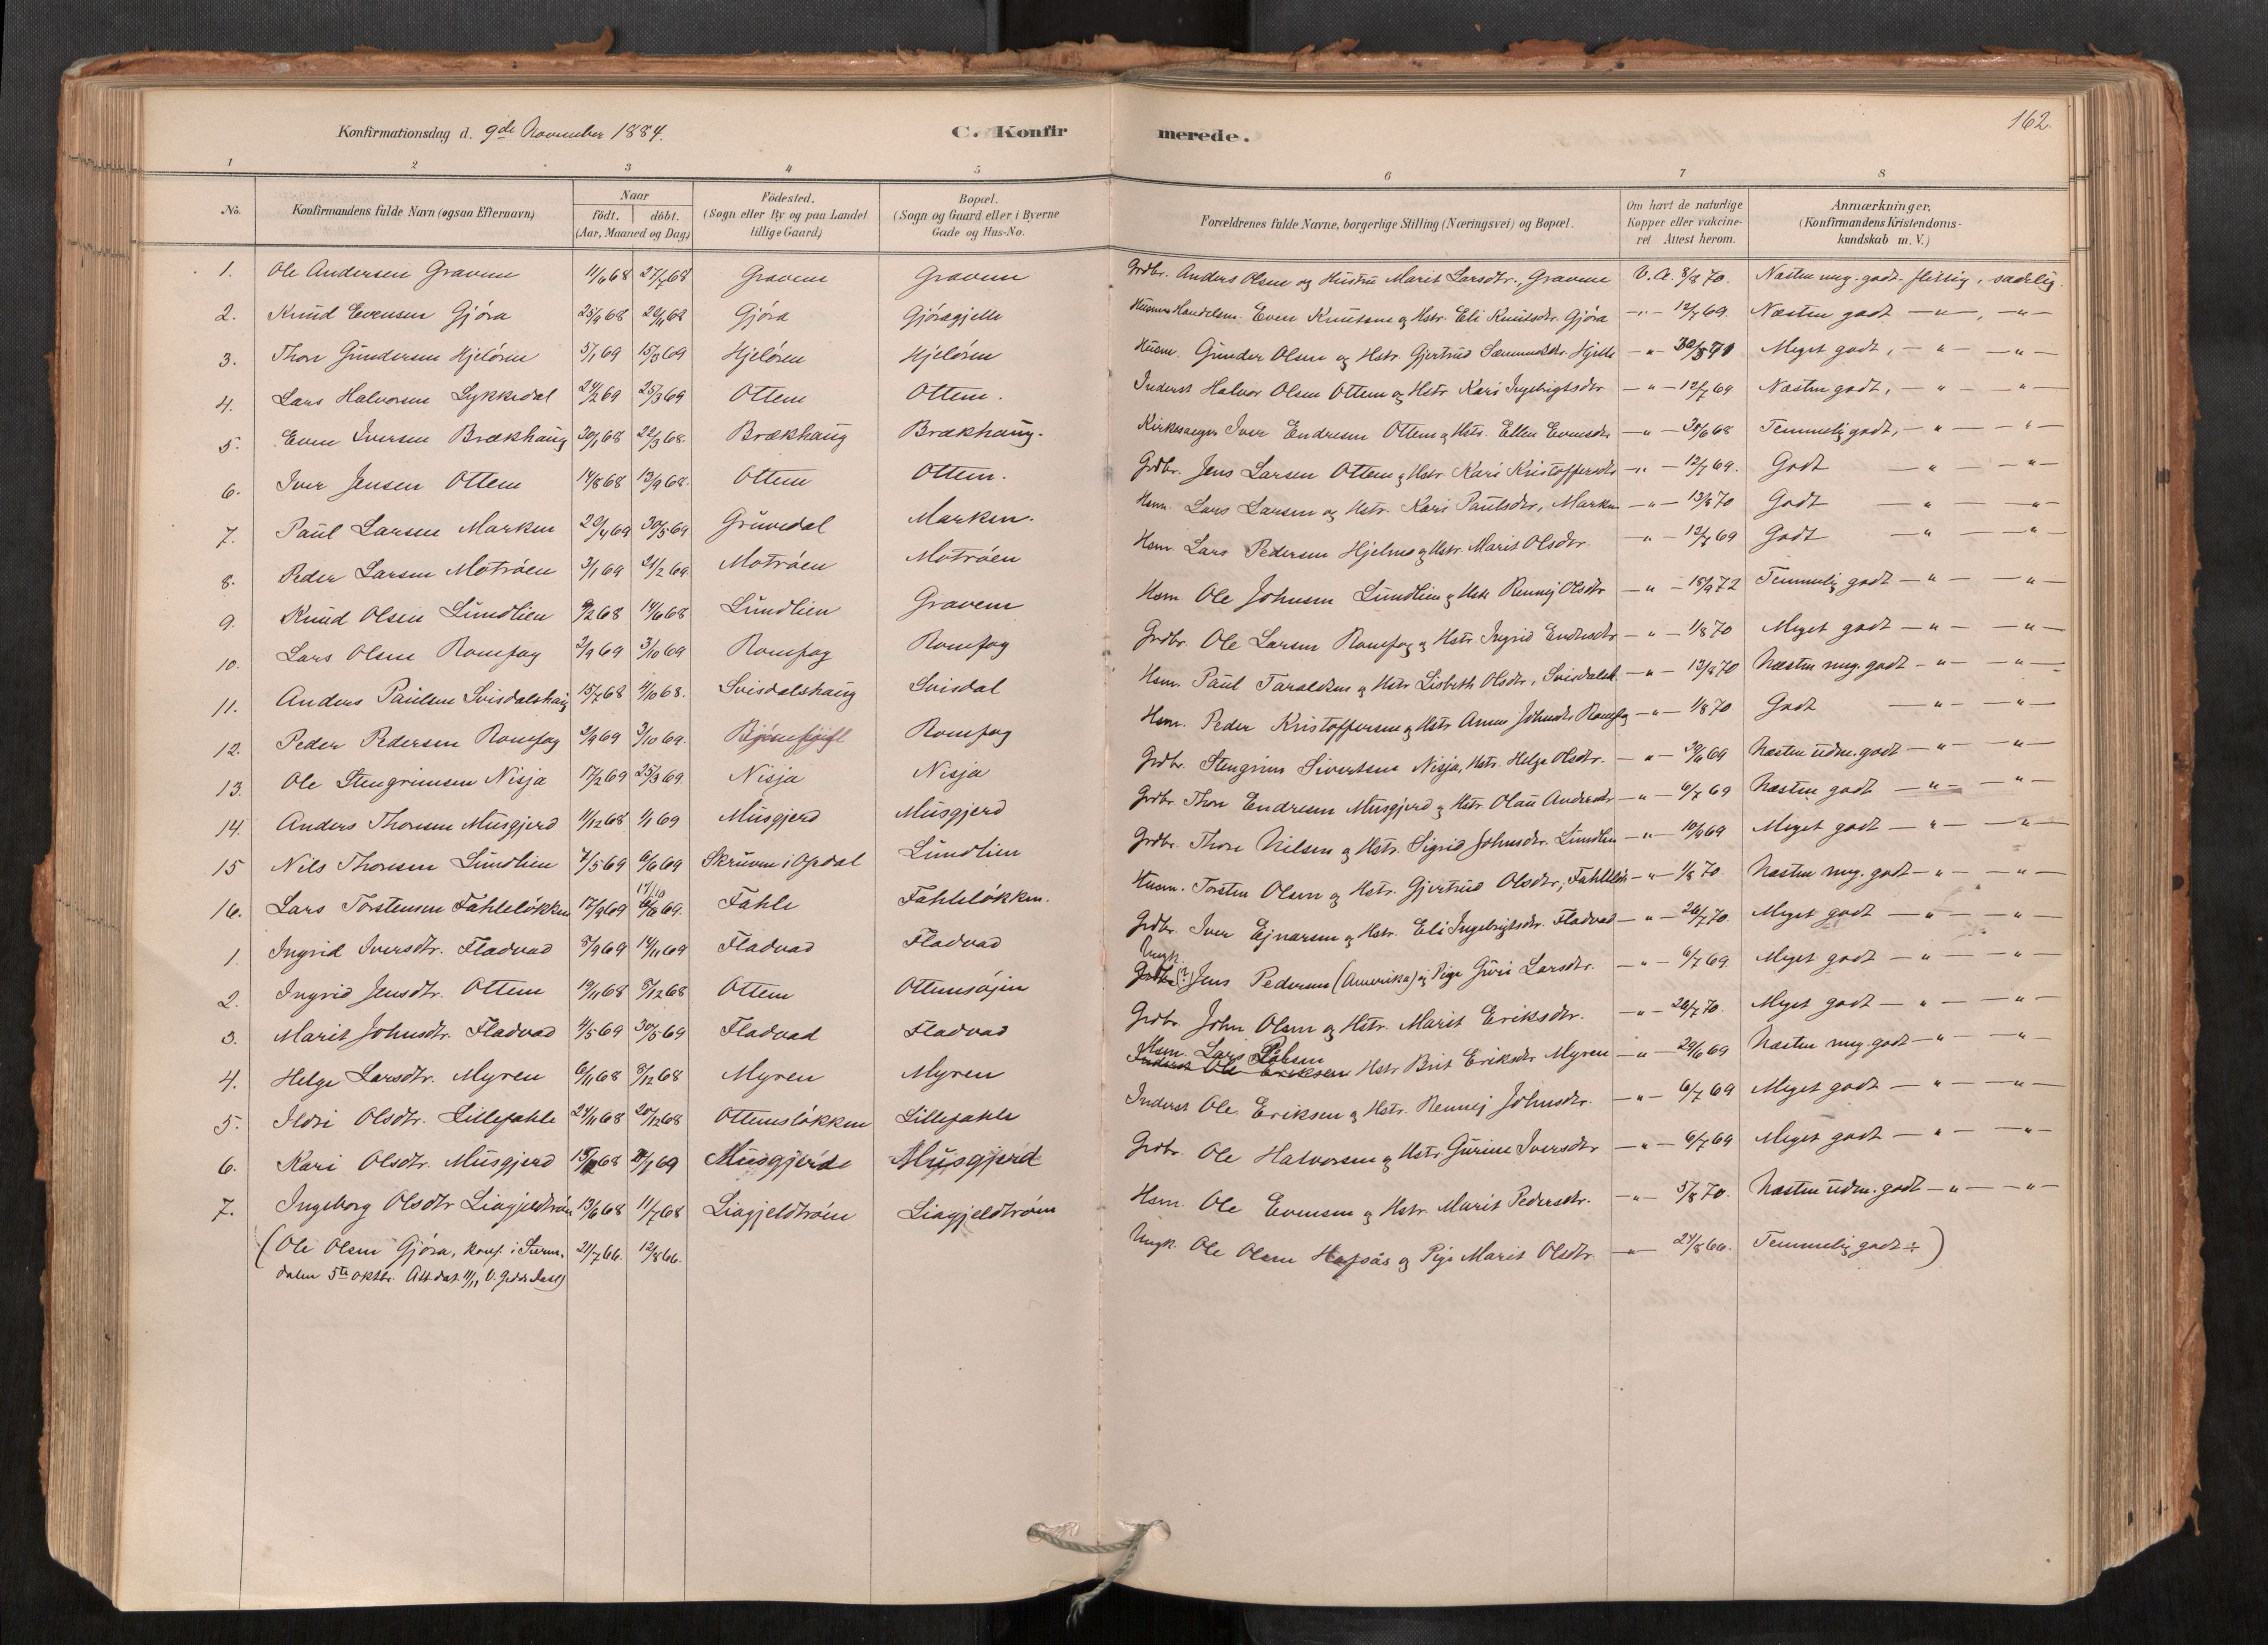 162.
Konfirmationsdag d. 9de November 1884.
C. Konfirmerede.
1 2 3 4 5 6 7 8
No. Konfirmandens fulde Navn (ogsaa Efternavn) Naar födt. döbt. (Aar, Maaned og Dag) Födested. (Sogn eller By og paa Landet tillige Gaard) Bopæl. (Sogn og Gaard eller i Byerne Gade og Hus-No. Forældrenes fulde Navne, borgerlige Stilling (Næringsvei) og Bopæl. Om havt de naturlige Kopper eller vakcineret Attest herom. Anmærkninger. (Konfirmandens Kristendomskundskab m. V.)
1. Ole Andersen Gravem 11/6 68 27/7 68 Gravem Gravem Grdbr. Anders Olsen og Hustru Marit Larsdtr., Gravem V.A. 8/8 70. Næsten meg. godt. flittig, sædelig.
2. Knud Evensen Gjöra 25/9 68 Gjöra Gjöragjelle Even Knutsen og Hstr. Eli Knutsdtr. Gjöra -"- 12/7 69. Næsten godt -"-, -"-
3. Thore Gundersen Hjelöien 5/1 69 15/3 69 Hjelöien Hjelöien Husm. Gunder Olsen og Hstr. Gjertrud Hjelle -"- Meget godt, -"- -"-
4. Lars Halvorsen Lykkedal 24/2 69 25/3 69 Ottem Ottem. Inderst Halvor Olsen Ottem og Hstr Kari Ingebrigtsdtr -"- 12/7 69 Næsten godt, -"- -"-
5. Even Iversen Brækhaug 30/1 68 22/3 68. Brækhaug Brækhaug. Iver Endresen Ottem og Hstr. Ellen Evensdtr -"- 30/6 68 Temmelig godt, -"- -"-
6. Iver Jensen Ottem 14/8 68 13/9 68. Ottem Ottem. Grdbr. Jens Larsen Ottem og Hstr Kari Kristoffersdtr -"- 12/7 69. Godt -"- -"-
7. Paul Larsen Marken 20/4 69 30/5 69 Grüvedal Marken. Hsm. Lars Larsen og Hstr. Kari Paulsdtr, Marken -"- 13/8 70 Godt -"- -"-
8. Peder Larsen Motröen 3/1 69 21/2 69. Motröen Motröen Hsm. Lars Pedersen Hjelmo og Hstr. Marit Olsdtr. -"- 12/7 69 Godt -"- -"-
9. Knud Olsen Lundlien 14/6 68 Lundlien Gravem Hsm Ole Johnsen Lundlien og Hstr Olsdtr -"- 18/9 72 Temmelig godt -"- -"-
10. Lars Olsen Romfog 2/9 69 3/10 69 Romfog Romfog Grdbr. Ole Larsen Romfog og Hstr. Ingrid Endresdtr -"- 1/8 70 Meget godt -"- -"-
11. Anders Paulsen Svisdalshaug 15/7 68 4/10 68. Svisdalshaug Svisdal Hsm. Paul Taraldsen og Hstr Lisbeth Olsdtr, Svisdalsh. -"- 13/8 70 Næsten meg. godt -"- -"-
12. Peder Pedersen Romfog 2/9 69 3/10 69. Romfog Hsm. Peder Kristoffersen og Hstr Anne Johnsdtr Romfog -"- 1/8 70 Godt -"- -"-
13. Ole Stengrimsen Nisja 17/2 69 25/3 69. Nisja Nisja Grdbr. Stengrim Sivertsen Nisja, Hstr. Helge Olsdtr. -"- 30/6 69 Næsten udm. godt -"- -"-
14. Anders Thoresen Musgjerd 11/12 68 1/1 69 Musgjerd Musgjerd Grdbr. Thore Endresen Musgjerd og Hstr Olau Andersdtr -"- 6/7 69 Næsten godt -"- -"-
15 Nils Thoresen Lundlien 7/5 69 6/6 69 Skruven i Opdal Lundlien Grdbr. Thore Nilsen og Hstr. Sigrid Johnsdtr. Lundlien -"- 10/9 69 Meget godt -"- -"-
16. Lars Torstensen Fahleløkken 17/9 69 17/10 69. Fahle Fahleløkken. Husm. Torsten Olsen og Hstr. Gjertrud Olsdtr, Fahleløk -"- 1/8 70. Næsten meg. godt -"- -"-
1. Ingrid Iversdtr. Fladvad 8/9 69 14/11 69 Fladvad Fladvad Grdbr. Iver Ejnarsen og Hstr. Eli Ingebrigtsdtr. Fladvad -"- 26/7 70. Meget godt -"- -"-
2. Ingrid Jensdtr. Ottem 19/11 68 8/12 68 Ottem Ottemsöjen Ungk. Grdbr (?) Jens Pedersen (Amerika) og Pige Guri Larsdtr. -"- 6/7 69 Meget godt -"- -"-
3. Marit Johnsdtr. Fladvad 4/5 69 30/5 69 Fladvad Fladvad Grdbr. John Olsen og Hstr. Marit Eriksdtr. -"- 26/7 70. Meget godt -"- -"-
4. Helge Larsdtr. Myren 6/11 68 8/12 68 Myren Myren Hsm. Lars Inderst Ole Eriksen Hstr Brit Eriksdtr Myren -"- 29/6 69 Næsten meg. godt -"- -"-
5. Ildri Olsdtr. Lillefahle 24/11 68 20/12 68 Ottemsløkken Lillefahle Inderst Ole Eriksen og Hstr. Rennej Johnsdtr. -"- 6/7 69 Meget godt -"- -"-
6. Kari Olsdtr. Musgjerd Musgjerde Musgjerd Grdbr. Ole Halvorsen og Hstr. Gurine Iversdtr -"- 6/7 69 Meget godt -"- -"-
7. Ingeborg Olsdtr Liagjeldtröen 13/6 68 11/7 68 Liagjeldtröen Liagjeldtröen Hsm. Ole Evensen og Hstr. Marit Pedersdtr. -"- 5/8 70. Næsten udm. godt -"- -"-
(Ole Olsen Gjöra, konf. i 21/7 66. 12/8 66. Ungk. Ole Olsen Hafsås og Pige Marit Olsdtr. -"- 24/8 66. Temmelig godt ÷)
dalen 5te oktbr. Att. dat. 11/11